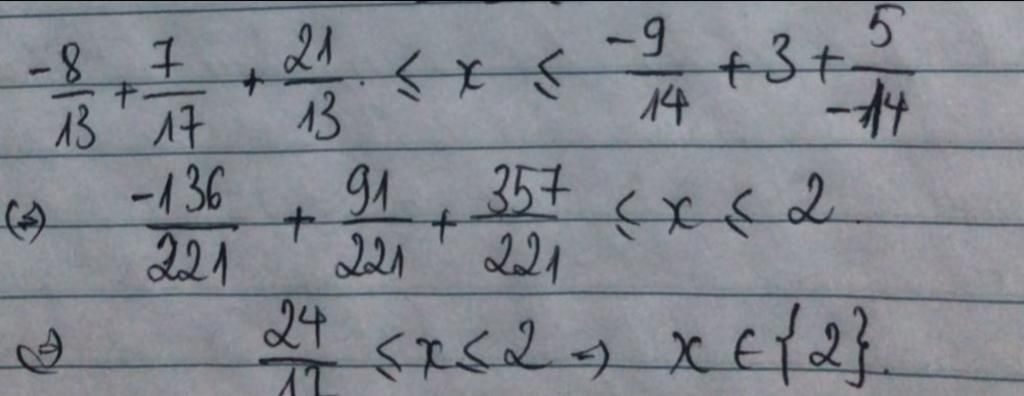 -8/13 + 7/17 + 21/13 ≤ x ≤ -9/14 + 3 + 5/-14
(⇒) -136/221 + 91/221 + 357/221 ≤ x ≤ 2
⇒ 24/17 ≤ x ≤ 2 ⇒ x ∈ {2}.